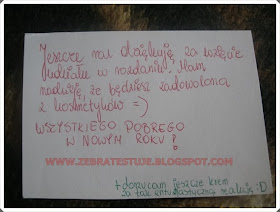 Jeszcze raz dziękuję za wzięcie
udziału w rozdaniu. Mam
nadzieję, że będziesz zadowolona
z kosmetyków =)
WSZYSTKIEGO DOBREGO
W NOWYM ROKU!
WWW.ZEBRATESTUJE.BLOGSPOT.COM
+ dorzucam jeszcze krem
za tak entuzjastyczną reakcję :D